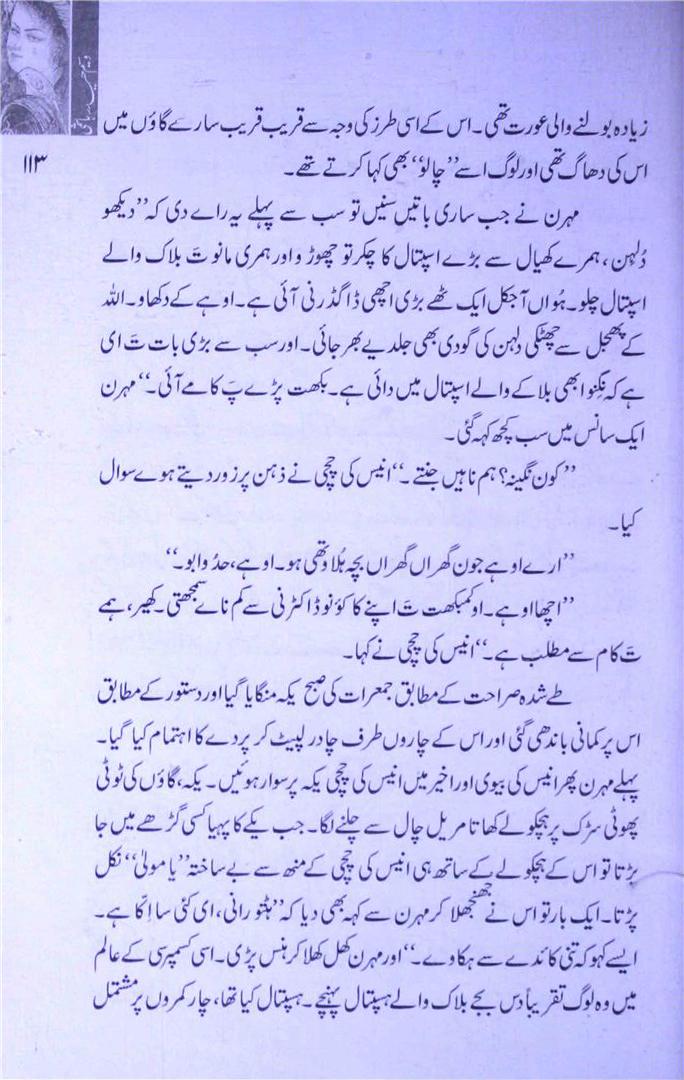 زیادہ بولنے والی عورت تھی۔ اس کے اسی طرز کی وجہ سے قریب قریب سارے گاؤں میں
اس کی دھاگ تھی اور لوگ اسے ’’چالو‘‘ بھی کہا کرتے تھے۔
۱۱۳
مہرن نے جب ساری باتیں سنیں تو سب سے پہلے یہ راے دی کہ ’’دیکھو
دُلہن، ہمرے کھیال سے بڑے اسپتال کا چکر تو چھوڑو اور ہمری مانو تَ بلاک والے
اسپتال چلو۔ ہُواں آجکل ایک ٹھے بڑی اچھی ڈاگڈرنی آئی ہے۔ اوہے کے دکھاو۔ اللہ
کے پھجل سے چھٹکی دلہن کی گودی بھی جلدیے بھر جائی۔ اور سب سے بڑی بات تَ ای
ہے کہ نگنوا بھی بلا کے والے اسپتال میں دائی ہے۔ بکھت پڑے پَ کامے آئی۔‘‘ مہرن
ایک سانس میں سب کچھ کہہ گئی۔
’’کون نگینہ؟ ہم ناہیں جنتے۔‘‘ انیس کی چچی نے ذہن پر زور دیتے ہوے سوال
کیا۔
’’ارے اوہے جون گھراں گھراں بچہ ہُلاوتھی ہو۔ اوہے، حدُوا بو۔‘‘
’’اچھا اوہے۔ او کمبکھت تَ اپنے کا کؤنو ڈاکٹرنی سے کم ناے سمجھتی۔ کھیر، ہمے
تَ کام سے مطلب ہے۔‘‘ انیس کی چچی نے کہا۔
طے شدہ صراحت کے مطابق جمعرات کی صبح یکہ منگایا گیا اور دستور کے مطابق
اس پر کمانی باندھی گئی اور اس کے چاروں طرف چادر لپیٹ کر پردے کا اہتمام کیا گیا۔
پہلے مہرن پھر انیس کی بیوی اور اخیر میں انیس کی چچی یکہ پر سوار ہوئیں۔ یکہ، گاؤں کی ٹوٹی
پھوٹی سڑک پر ہچکولے کھاتا مریل چال سے چلنے لگا۔ جب یکے کا پہیا کسی گڑھے میں جا
پڑتا تو اس کے ہچکولے کے ساتھ ہی انیس کی چچی کے منھ سے بے ساختہ ’’یا مولیٰ‘‘ نکل
پڑتا۔ ایک بار تو اس نے جھنجھلا کر مہرن سے کہہ بھی دیا کہ ’’ہٹو رانی، ای کئی سا اِکا ہے۔
ایسے کہو کہ تنی کائدے سے ہکاوے۔‘‘ اور مہرن کھل کھلا کر ہنس پڑی۔ اسی کسمپرسی کے عالم
میں وہ لوگ تقریباً دس بجے بلاک والے ہسپتال پہنچے۔ ہسپتال کیا تھا، چار کمروں پر مشتمل